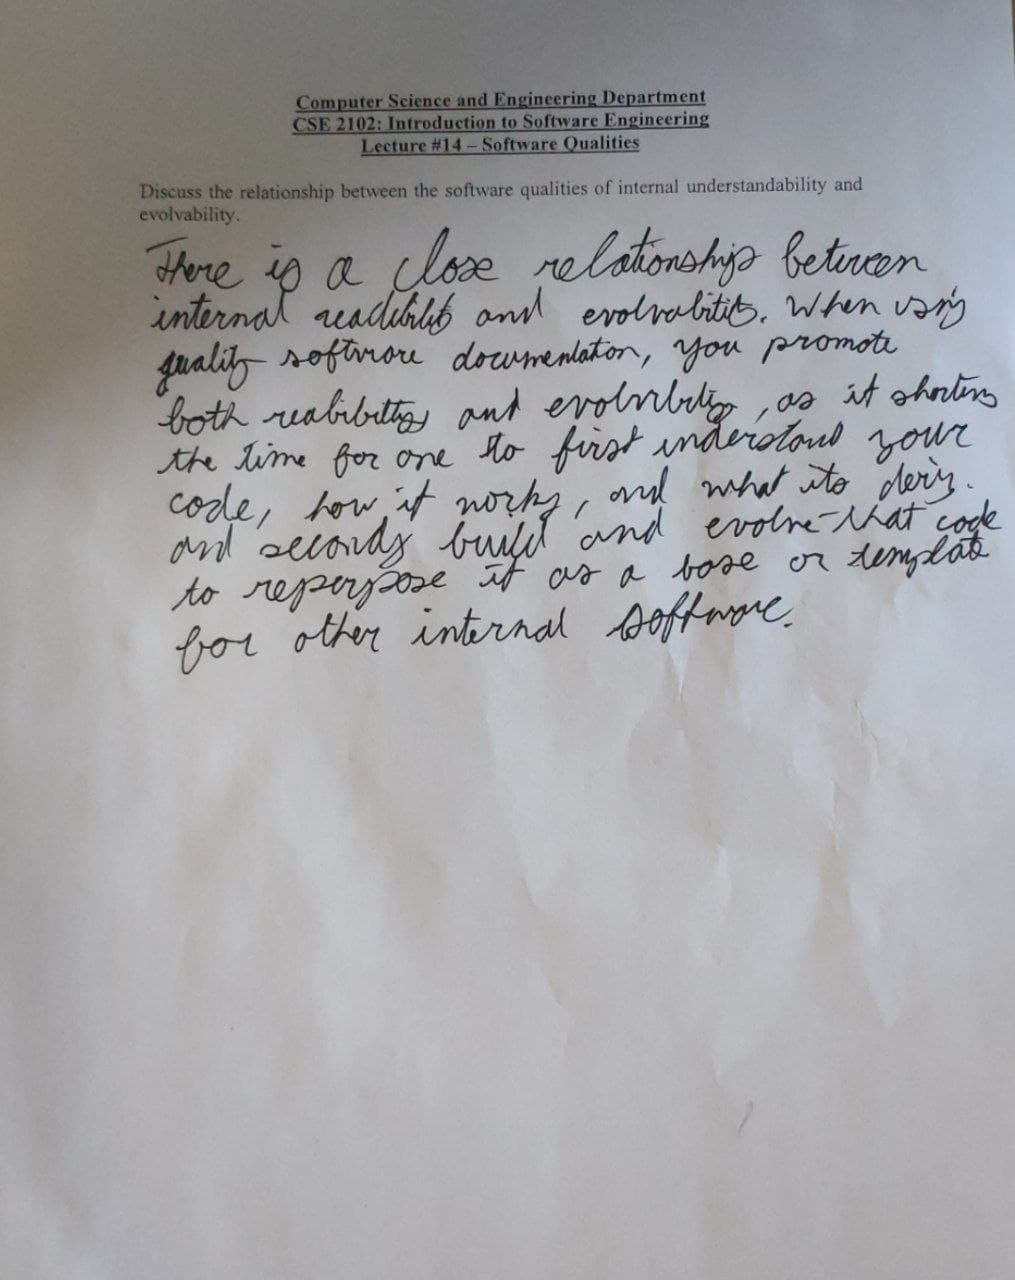 Computer Science and Engineering Department
CSE 2102: Introduction to Software Engineering
Lecture #14 – Software Qualities
Discuss the relationship between the software qualities of internal understandability and
evolvability.
There is a close relationship between
internal readibility and evolvability. When using
quality software documentation, you promote
both and evolvability, as it shortens
the time for one to first understand your
code, how it works, and what its
and secondly build and evolve that code
to reperpose it as a base or template
for other internal software.